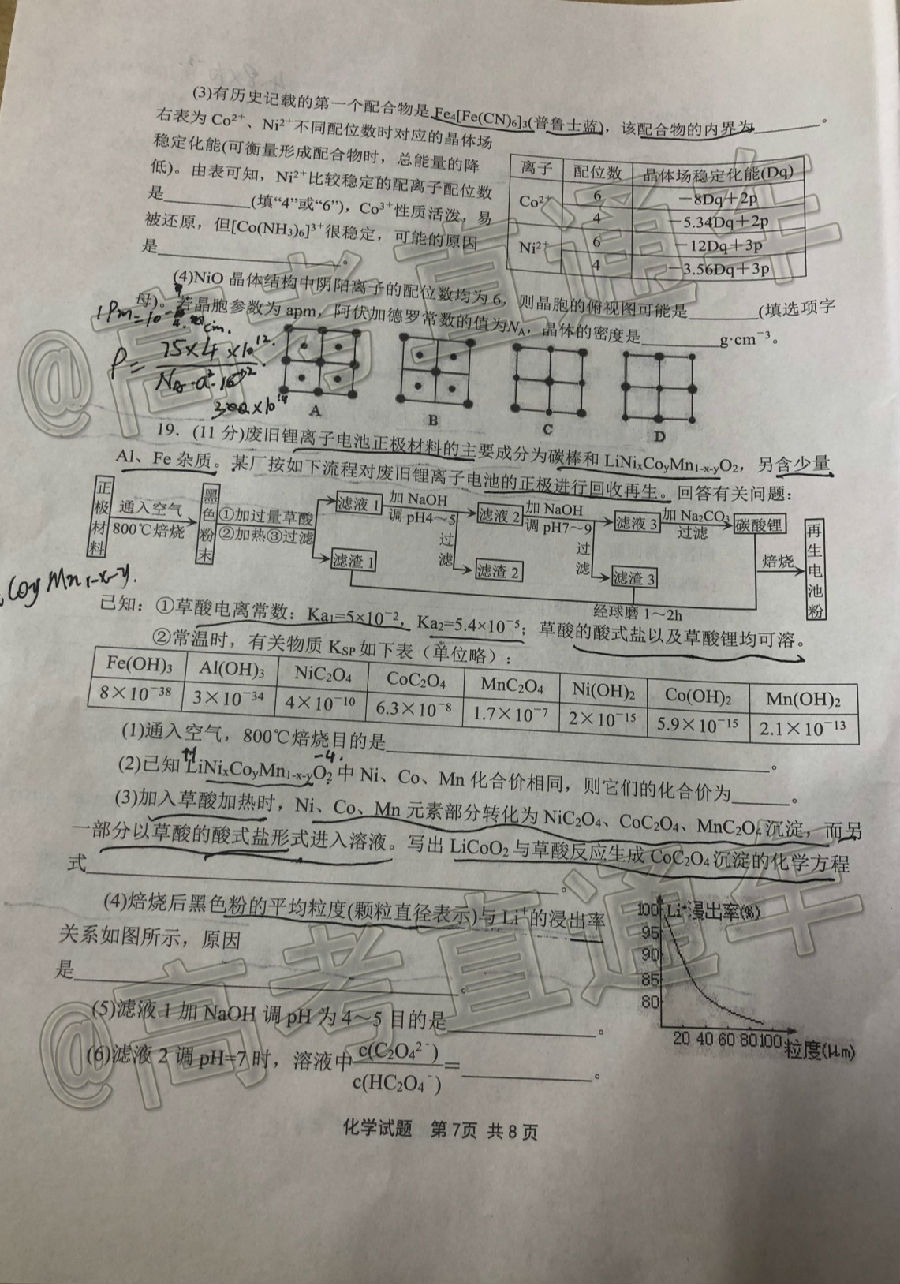 (3)有历史记载的第一个配合物是 Fe₄[Fe(CN)₆]₃(普鲁士蓝)，该配合物的内界为________。
右表为 Co²⁺、Ni²⁺不同配位数时对应的晶体场
稳定化能(可衡量形成配合物时，总能量的降
低)。由表可知，Ni²⁺比较稳定的配离子配位数
是________(填“4”或“6”)，Co³⁺性质活泼，易
被还原，但[Co(NH₃)₆]³⁺很稳定，可能的原因
是________________。
离子 配位数 晶体场稳定化能(Dq)
Co²⁺ 6 －8Dq＋2p
4 －5.34Dq＋2p
Ni²⁺ 6 －12Dq＋3p
4 －3.56Dq＋3p
(4)NiO 晶体结构中阴阳离子的配位数均为 6，则晶胞的俯视图可能是________(填选项字
母)。若晶胞参数为 apm，阿伏加德罗常数的值为Nₐ，晶体的密度是________g·cm⁻³。
A B C D
19. (11 分)废旧锂离子电池正极材料的主要成分为碳棒和 LiNiₓCoᵧMn₁₋ₓ₋ᵧO₂，另含少量
Al、Fe 杂质。某厂按如下流程对废旧锂离子电池的正极进行回收再生。回答有关问题：
正极材料 通入空气 800℃焙烧 黑色粉末 ①加过量草酸 ②加热③过滤 滤液 1 加 NaOH 调 pH4～5 过滤 滤液 2 加 NaOH 调 pH7～9 过滤 滤液 3 加 Na₂CO₃ 过滤 碳酸锂 焙烧 再生电池粉
滤渣 1 滤渣 2 滤渣 3
经球磨 1～2h
CoyMn1-x-y.
已知：①草酸电离常数：Ka₁=5×10⁻²，Ka₂=5.4×10⁻⁵；草酸的酸式盐以及草酸锂均可溶。
②常温时，有关物质 K_SP 如下表（单位略）：
Fe(OH)₃ Al(OH)₃ NiC₂O₄ CoC₂O₄ MnC₂O₄ Ni(OH)₂ Co(OH)₂ Mn(OH)₂
8×10⁻³⁸ 3×10⁻³⁴ 4×10⁻¹⁰ 6.3×10⁻⁸ 1.7×10⁻⁷ 2×10⁻¹⁵ 5.9×10⁻¹⁵ 2.1×10⁻¹³
(1)通入空气，800℃焙烧目的是________________。
+1 -4.
(2)已知 LiNiₓCoᵧMn₁₋ₓ₋ᵧO₂ 中 Ni、Co、Mn 化合价相同，则它们的化合价为______。
(3)加入草酸加热时，Ni、Co、Mn 元素部分转化为 NiC₂O₄、CoC₂O₄、MnC₂O₄ 沉淀，而另
一部分以草酸的酸式盐形式进入溶液。写出 LiCoO₂ 与草酸反应生成 CoC₂O₄ 沉淀的化学方程
式________________。
(4)焙烧后黑色粉的平均粒度(颗粒直径表示)与 Li⁺的浸出率
关系如图所示，原因
是________________。
Li⁺浸出率(%)
100
95
90
85
80
20 40 60 80 100 粒度(μm)
(5)滤液 1 加 NaOH 调 pH 为 4～5 目的是________________。
(6)滤液 2 调 pH=7 时，溶液中 c(C₂O₄²⁻)/c(HC₂O₄⁻)=________________。
化学试题 第 7页 共 8 页
@高考直通车
@高考直通车